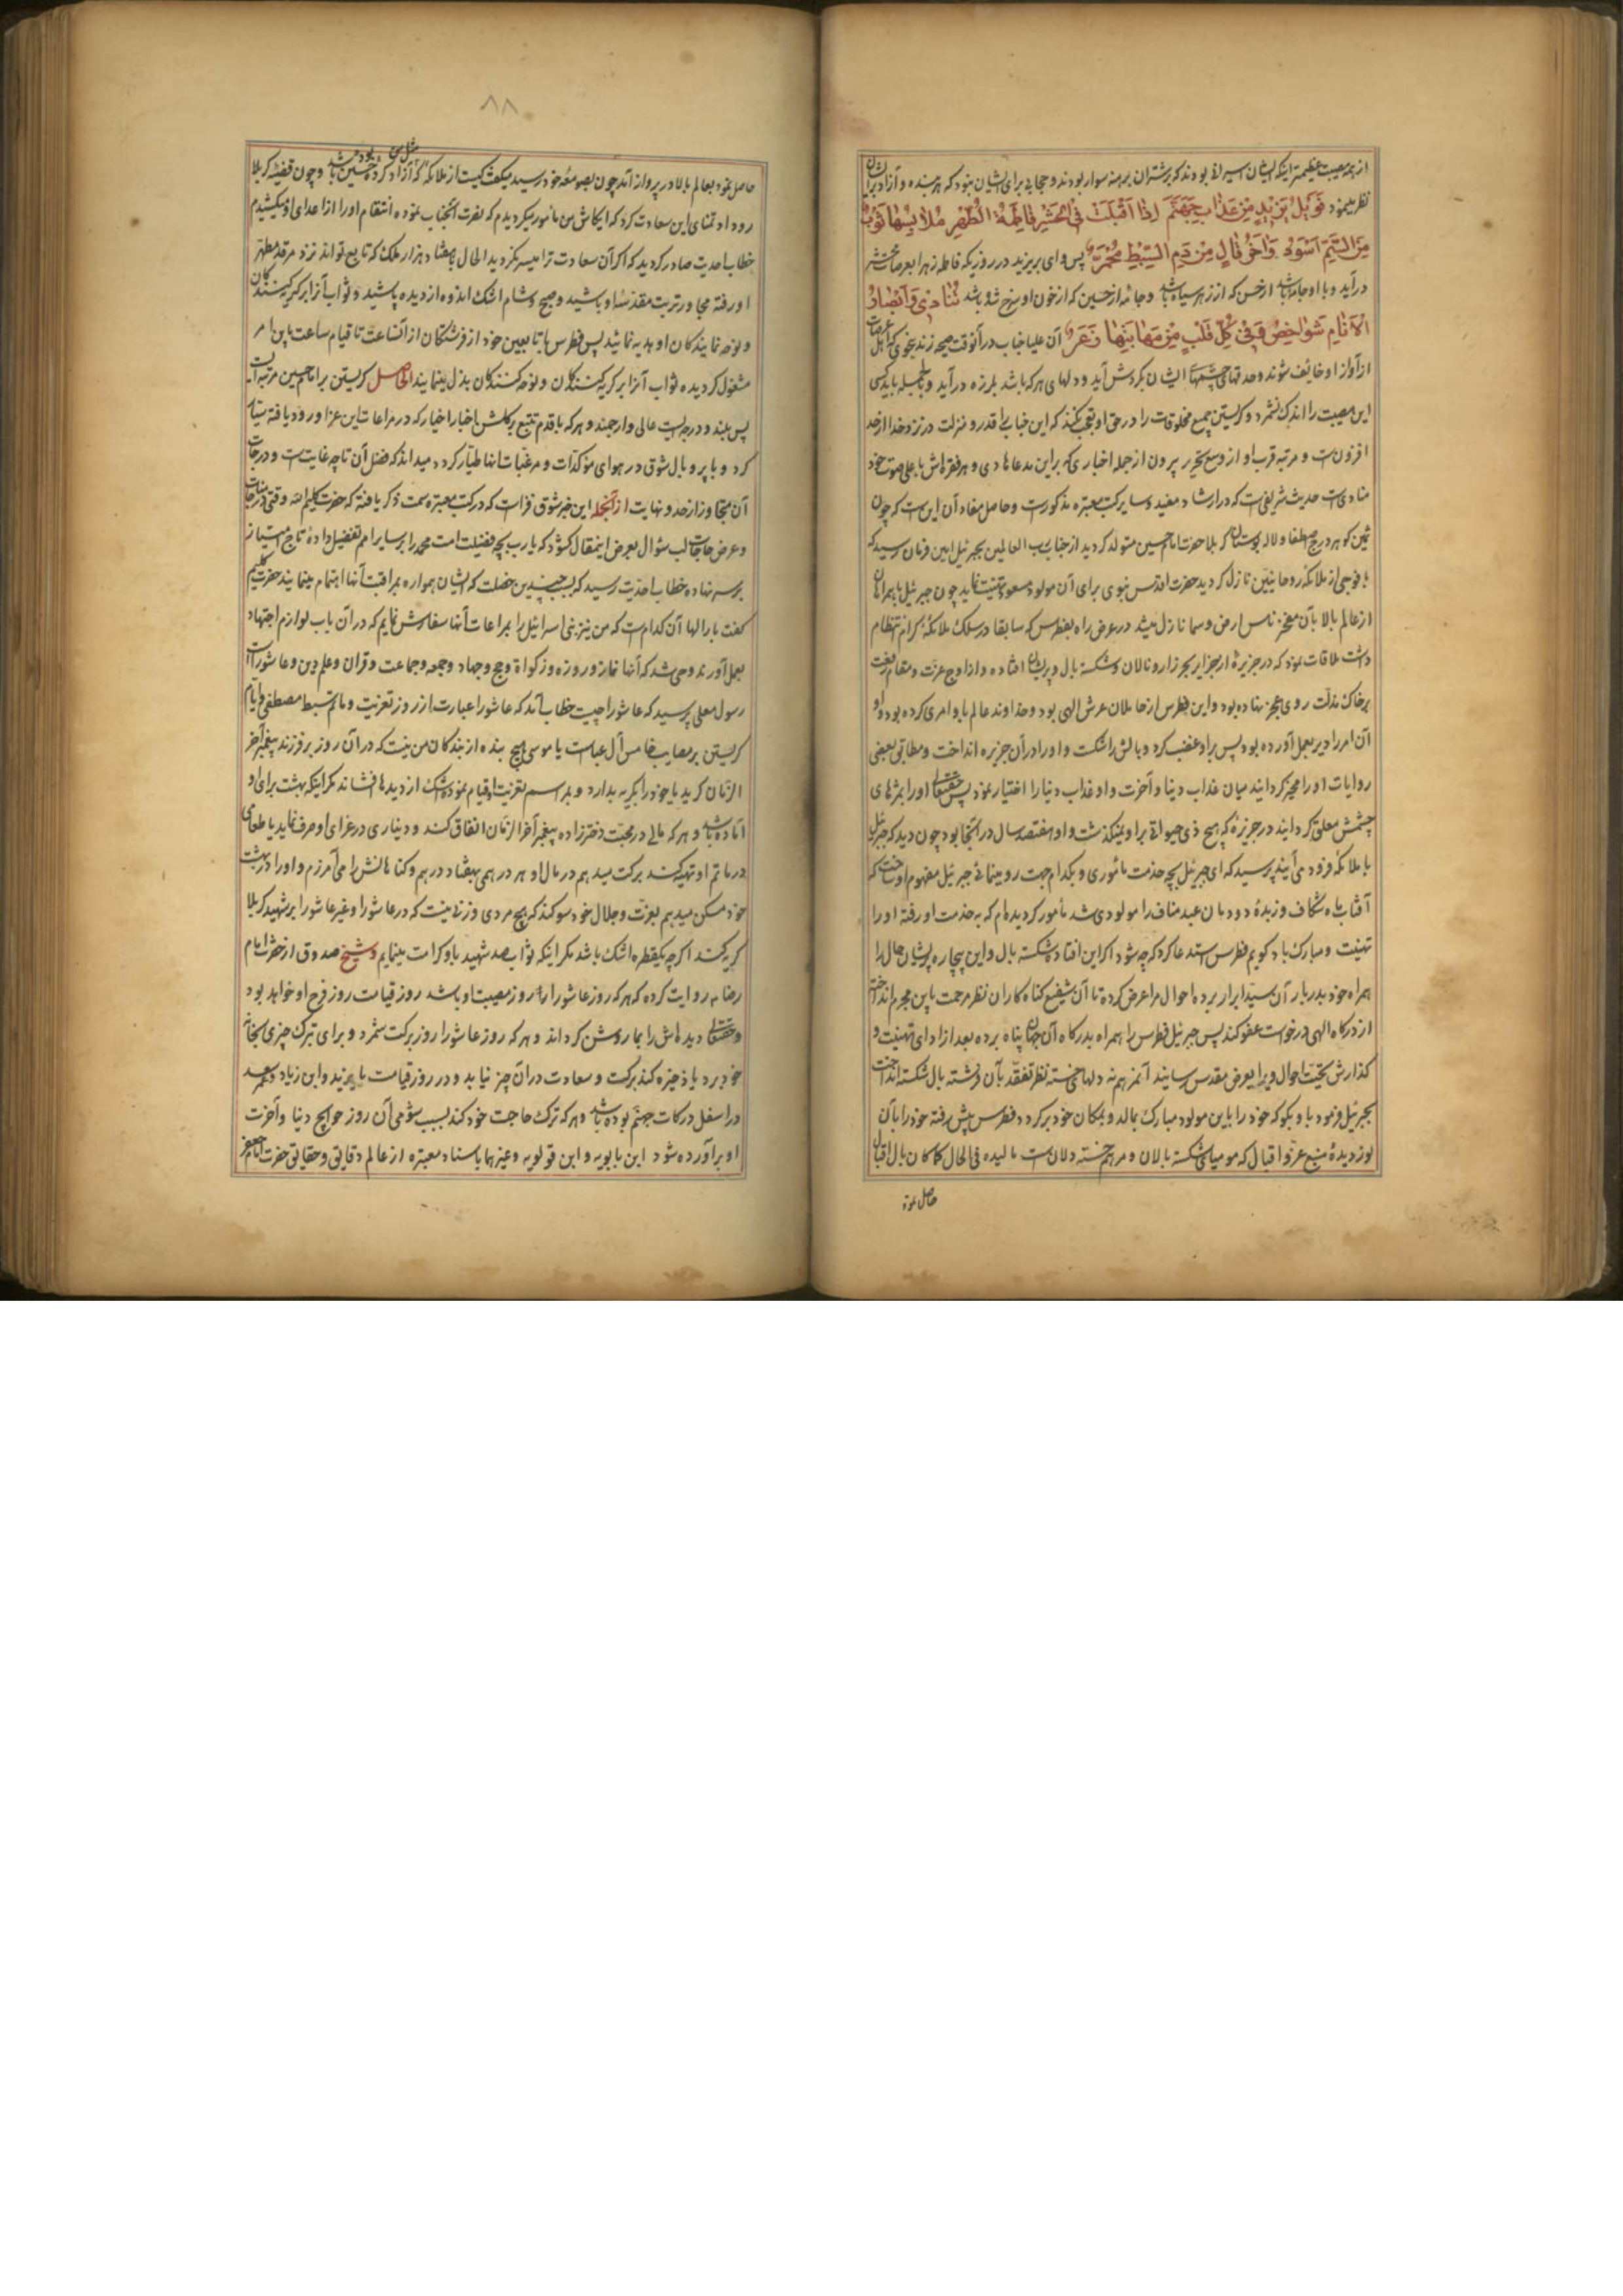 از همه مصیبت عظیمتر اینکه ایشان اسیر بودند که بر شتران برهنه سوار بودند و حجابی برای ایشان نبود که هر بنده و آزاد برایشان
نظر مینمود فَوَيْلُ يَزِيْدٍ مِنْ عَذَابِ جَهَنَّمَ اِذَا اَقْبَلَتْ فِی الْحَشْرِ فَاطِمَةُ الطُّهْرِ مَلَابِسُهَا ثَوْبٌ
مِنَ السَّمِّ اَسْوَدٌ وَآخَرُ قَانٍ مِنْ دَمِ السِّبْطِ مُحْمَرٌّ پس وای بر یزید در روزیکه فاطمه زهرا بعرصات محشر
درآید و با او جامه باشد از حسن که از زهر سیاه باشد و جامه از حسین که از خون او سرخ شده باشد تُنَادِی وَاَبْصَارُ
الْاَنَامِ شَوَاخِصُ وَفِی كُلِّ قَلْبٍ مِنْ مَهَابَتِهَا ذُعْرٌ آن علیا جناب در آنوقت صیحه زند بنحوی که اهل عرصات
از آواز او خائف شوند و حدقهای چشمهای ایشان بگردش آید و دلهای هر که باشد بلرزه درآید و بالجمله باید کسی
این مصیبت را اندک نشمرد و گریستن جمیع مخلوقات را در حق او تعجب نکند که این جناب را قدر و منزلت در نزد خدا از حد
افزونست و مرتبه قرب او از وسع تحریر بیرون از جمله اخباری که بر این مدعا هادی و هر فقره‌اش باعلی صوت خود
منادیست حدیث شریفی است که در ارشاد مفید و سایر کتب معتبره مذکورست و حاصل مفاد آن این است که چون
ثمین گوهر درج مصطفا و لاله بوستان کربلا حضرت امام حسین متولد گردید از جناب رب العالمین بجبرئیل امین فرمان رسید که
با فوجی از ملائکه روحانیین نازل گردید حضرت اقدس نبوی برای آن مولود مسعود تهنیت نماید چون جبرئیل با همراهان
از عالم بالا بآن مفخر ناس ارض و سما نازل میشد در عرض راه بفطرس که سابقا در سلک ملائکه کرام انتظام
داشت ملاقات نمود که در جزیره از جزایر بحر زار و نالان و شکسته بال و پریشان افتاده و از اوج عزت و مقام رفعت
بر خاک مذلت روی عجز نهاده بود و این فطرس از حاملان عرش الهی بود و خداوند عالم باو امری کرده بود و او
آن امر را دیر بعمل آورده بود پس بر او غضب کرد و بالش را شکست و او را در آن جزیره انداخت و مطابق بعضی
روایات او را مخیر گردانید میان عذاب دنیا و آخرت و او عذاب دنیا را اختیار نمود پس حقتعالی او را بمژهای
چشمش معلق گردانید در جزیره که هیچ ذی حیوة بر او نمیگذشت و او هفتصد سال در آنجا بود چون دید که جبرئیل
با ملائکه فرود می‌آیند پرسید که ای جبرئیل بچه خدمت مأموری و بکدام جهت رو مینمائی جبرئیل مفهوم او ساخت که
آفتاب ماه شکاف و زبده دودمان عبد مناف را مولودی شد مأمور گردیده‌ام که به خدمت او رفته او را
تهنیت و مبارک باد گویم فطرس استدعا کرد که چه شود اگر این افتاده شکسته بال و این بیچاره پریشان حال را
همراه خود بدربار آن سید ابرار برده احوال مرا عرض کرده تا آن شفیع گناه کاران نظر مرحمت باین مجرم انداخته
از درگاه الهی درخواست عفو کند پس جبرئیل فطرس را همراه بدرگاه آن جهان پناه برده بعد از ادای تهنیت و
گذارش تحیت احوال ویرا بعرض مقدس رسانید آنمرهم نه دلهای خسته نظر تفقد بآن فرشته بال شکسته انداخت
بجبرئیل فرمود باو بگو که خود را باین مولود مبارک بمالد و بمکان خود برگردد فطرس پیش رفته خود را بآن
نوردیده منبع عز و اقبال که مومیای شکسته بالان و مرهم خسته دلان است مالیده فی الحال کماکان بال اقبال
حاصل نموده
۸۸
حاصل نمود بعالم بالا در پرواز آمد چون بصومعه خود رسید میگفت کیست از ملائکه مثل من که آزاد کرده حسین بوده باشد و چون قضیه کربلا
روداد تمنای این سعادت کرد که ایکاش من مأمور میگردیدم که نصرت آنجناب نموده انتقام او را از اعدای او میکشیدم
خطاب احدیت صادر گردید که اگر آن سعادت ترا میسر نگردید الحال بهفتاد هزار ملک که تابع تو اند نزد مرقد مطهر
او رفته مجاور تربت مقدسه او باشید و صبح و شام اشک اندوه از دیده پاشید و ثواب آنرا بر گریه کنندگان
و نوحه نمایندگان او هدیه نمائید پس فطرس با تابعین خود از فرشتگان از آنساعت تا قیام ساعت باین امر
مشغول گردیده ثواب آنرا بر گریه کنندگان و نوحه کنندگان بذل مینمایند الحاصل گریستن بر امام حسین مرتبه ایست
بس بلند و درجه ایست عالی و ارجمند و هر که با قدم تتبع بر گلشن اخبار اخیار که در مراعات این عزا ورود یافته سیاحت
کرد و با پر و بال شوق در هوای مؤکدات و مرغبات انها طیار گردد میداند که فضل آن تا چه غایت است و درجات
آن متجاوز از حد و نهایت ازآنجمله این خبر شوق فزاست که در کتب معتبره سمت ذکر یافته که حضرت کلیم الله وقتی در مناجات
و عرض حاجات لب سؤال بعرض اینمقال گشود که یا رب بچه فضیلت امت محمد را بر سایر امم تفضیل داده تاج امتیاز
بر سر نهاده خطاب احدیت رسید که بسبب چندین خصلت که ایشان همواره بمراقبت آنها اهتمام مینمایند حضرت کلیم
گفت بار الها آن کدام است که من نیز بنی اسرائیل را بمراعات آنها سفارش نمایم که در آن باب لوازم اجتهاد
بعمل آورند وحی شد که آنها نماز و روزه و زکوة و حج و جهاد و جمعه و جماعت و قران و علم دین و عاشورا است
رسول معلی پرسید که عاشورا چیست خطاب آمد که عاشورا عبارت از روز تعزیت و ماتم سبط مصطفی و ایام
گریستن بر مصایب خامس آل عباست یا موسی هیچ بنده از بندگان من نیست که در آن روز بر فرزند پیغمبر آخر
الزمان گرید یا خود را بگریه بدارد و بمراسم تعزیت او قیام نموده اشک از دیدها فشاند مگر اینکه بهشت برای او
آماده باشد و هر که مالی در محبت دخترزاده پیغمبر آخر الزمان انفاق کند و دیناری در عزای او صرف نماید یا طعامی
در ماتم او تهیه کند برکت میدهم در مال او هر درهمی بهفتاد درهم و گناهانش را می‌آمرزم و او را در بهشت
خود مسکن میدهم بعزت و جلال خود سوگند که هیچ مردی و زنی نیست که در عاشورا و غیر عاشورا بر شهید کربلا
گریه کند اگرچه یکقطره اشک باشد مگر اینکه ثواب صد شهید باو کرامت مینمایم و شیخ صدوق از حضرت امام
رضا م روایت کرده که هر که روز عاشورا را روز مصیبت او باشد روز قیامت روز فرح او خواهد بود
و حقتعالی دیده‌اش را بما روشن گرداند و هر که روز عاشورا را روز برکت شمرد و برای تبرک چیزی بخانه
خود برد یا ذخیره کند برکت و سعادت در آن چیز نیابد و در روز قیامت با یزید و ابن زیاد و عمر سعد
در اسفل درکات جهنم بوده باشد و هر که ترک حاجت خود کند بسبب شومی آن روز حوایج دنیا و آخرت
او برآورده شود ابن بابویه و ابن قولویه و غیرهما باسناد معتبره از عالم دقایق و حقایق حضرت امام جعفر